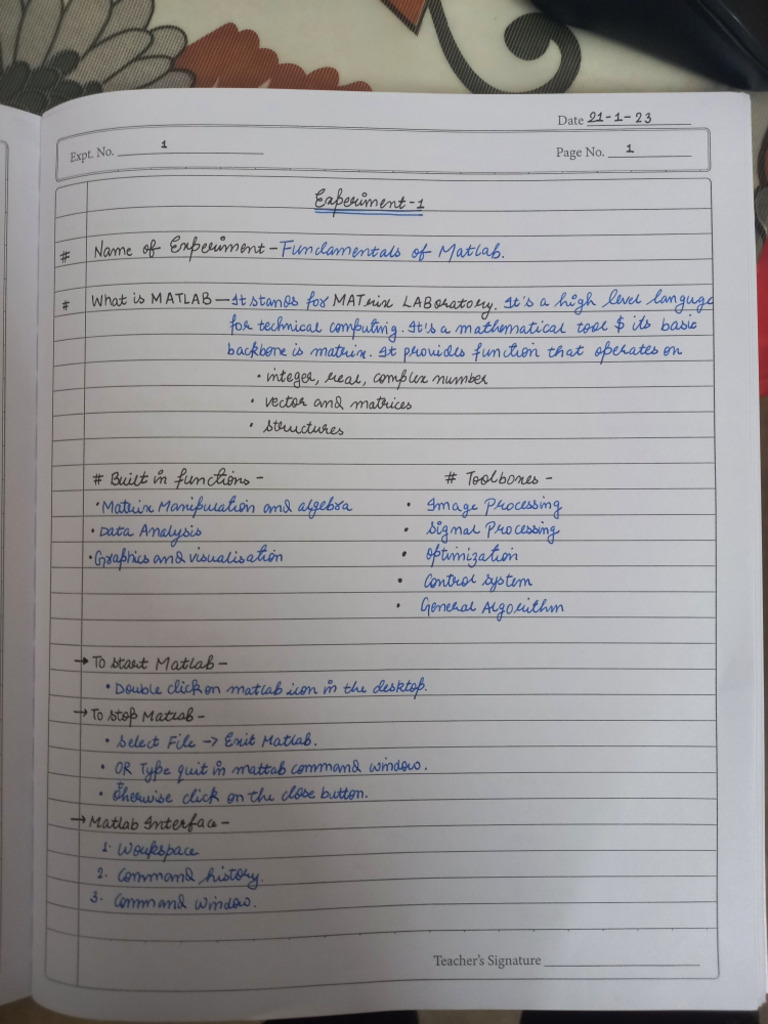 Date 21-1-23
Expt. No. 1
Page No. 1
Experiment-1
# Name of Experiment - Fundamentals of Matlab.
# What is MATLAB - It stands for MATrix LABoratory. It's a high level languge
for technical computing. It's a mathematical tool $ its basic
backbone is matrix. It provides function that operates on
• integer, real, complex number
• vector and matrices
• structures
# Built in functions -
• Matrix Manipulation and algebra
• Data Analysis
• Graphics and visualisation
# Toolboxes -
• Image Processing
• Signal Processing
• Optimization
• Control System
• General Algorithm
→ To start Matlab -
• Double click on matlab icon in the desktop.
→ To stop Matlab -
• Select File → Exit Matlab.
• OR Type quit in matlab command window.
• Otherwise click on the close button.
→ Matlab Interface -
1. Workspace
2. Command history.
3. Command window.
Teacher's Signature